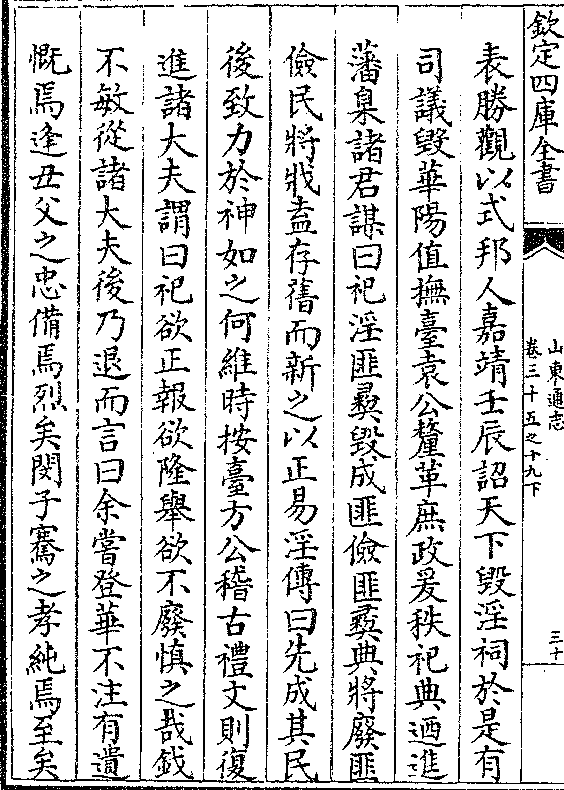 欽定四庫全書
山東通志
卷三十五之十九下
三十
表勝觀以式邦人嘉靖壬辰詔天下毀淫祠於是有
司議毀華陽值撫臺袁公釐革庶政爰秩祀典迺進
藩臬諸君謀曰祀淫匪彞毀成匪儉匪彞典將廢匪
儉民將戕盍存舊而新之以正易淫傳曰先成其民
後致力於神如之何維時按臺方公稽古禮文則復
進諸大夫謂曰祀欲正報欲隆舉欲不廢慎之哉鉞
不敏從諸大夫後乃退而言曰余嘗登華不注有遺
慨焉逢丑父之忠備焉烈矣閔子騫之孝純焉至矣